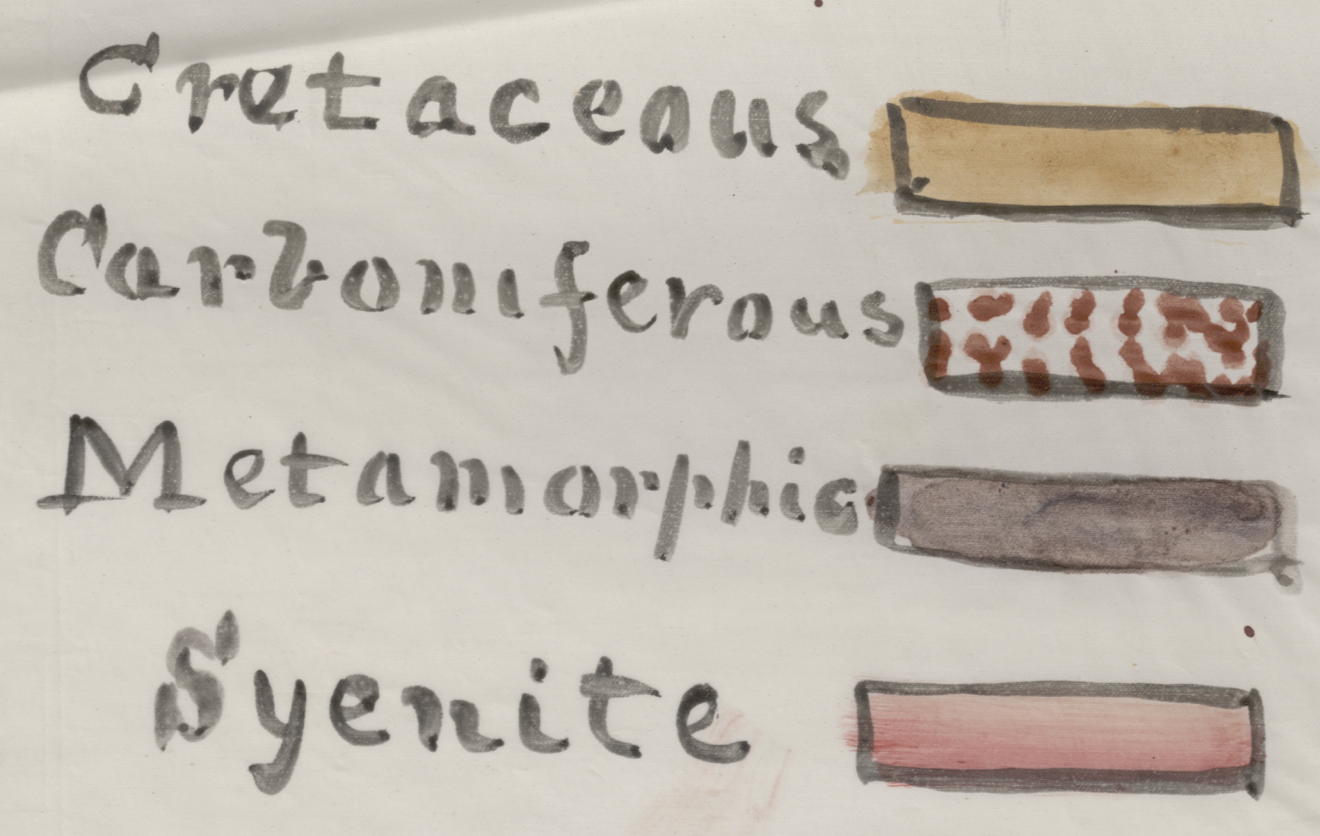 Cretaceous
Carboniferous
Metamorphic
Syenite